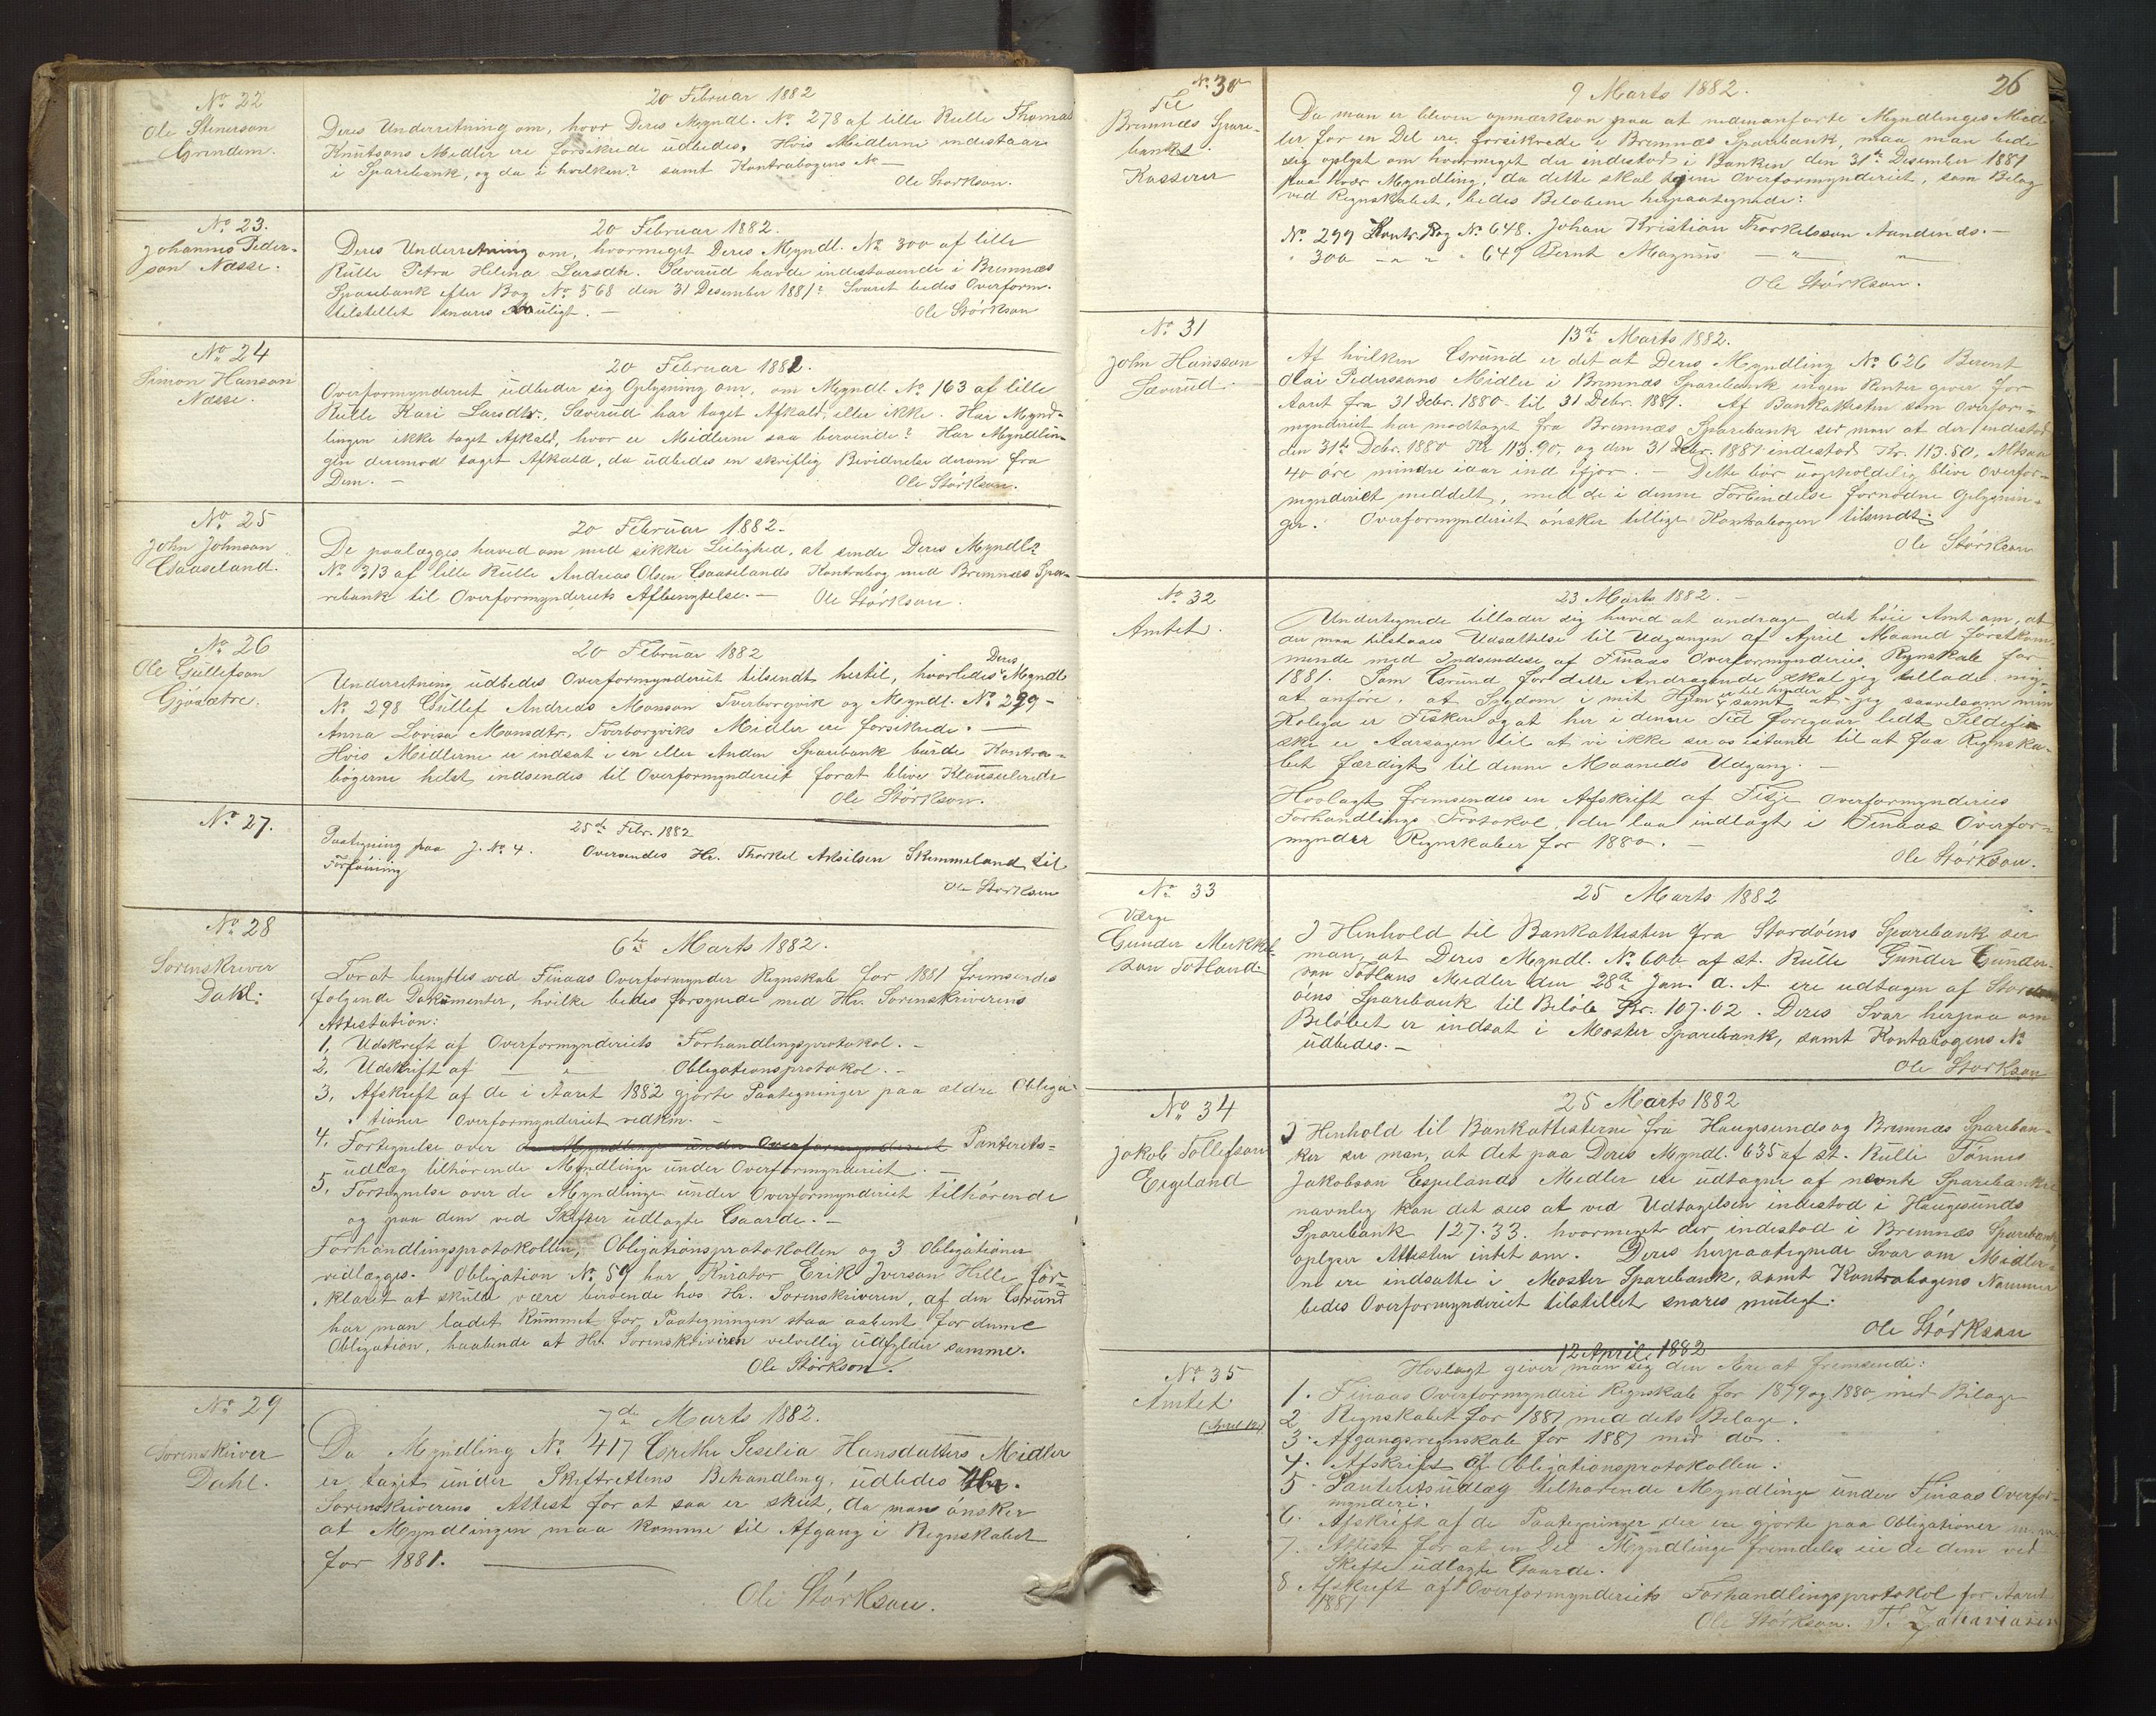 No 22
Ole Stenerson
Grindem.
20 Februar 1882
Deres Underretning om, hvor Deres Myndl. No 278 af lille Rulle Thomas
Knutsons Midler ere forsikrede udbedes. Hvis Midlerne indestaar
i Sparebank, og da i hvilken? samt Kontrabogens No —
Ole Størkson.
No 23.
Johannes Peder-
son Næsse.
20 Februar 1882.
Deres Underretning om, hvormeget Deres Myndl. No 300 af lille
Rulle Petra Helina Larsdtr. Sæverud havde indestaaende i Bremnæs
Sparebank efter Bog No 568 den 31 Desember 1881? Svaret bedes Overform.
tilstillet snares muligt. —
Ole Størkson
No 24
Simon Hanson
Næsse.
20 Februar 1882.
Overformynderiet udbeder sig Oplysning om, om Myndl. No 163 af lille
Rulle Kari Larsdtr. Sæverud har taget Afkald, eller ikke. Har Mynd-
lingen ikke taget Afkald, hvor er Midlerne saa beroende? Har Myndlin-
gen derimod taget Afkald, da udbedes en skriftlig Bevidnelse derom fra
Dem. —
Ole Størkson.
No 25
John Johnson
Gaaseland.
20 Februar 1882.
De paalægges herved om med sikker Leilighed, at sende Deres Myndl.
No 313 af lille Rulle Andreas Olsen Gaaselands Kontrabog med Bremnæs Spa-
rebank til Overformynderiets Afbenyttelse. —
Ole Størkson.
No 26
Ole Gullefson
Gjøsætre.
20 Februar 1882
Underretning udbedes Overformynderiet tilsendt hertil, hvorledes Deres Myndl
No 298 Gullef Andreas Monson Tverborgvik og Myndl. No 299 —
Anna Lovisa Monsdtr. Tverborgviks Midler ere forsikrede. —
Hvis Midlerne er indsat i en eller Anden Sparebank burde Kontra-
bøgerne helst indsendes til Overformynderiet forat blive Klausulerede
Ole Størkson.
No 27.
25de Febr. 1882
Paategning paa J. No 4. Oversendes Hr. Thorkel Akselsen Skimmeland til
Forføining
Ole Størkson
No 28
Sorenskriver
Dahl:
6te Marts 1882.
For at benyttes ved Finaas Overformynder Regnskab for 1881 fremsendes
følgende Dokumenter, hvilke bedes forsynede med Hr. Sorenskriverens
Attestation:
1, Udskrift af Overformynderiets Forhandlingsprotokol. —
2, Udskrift af — " — Obligationsprotokol. —
3, Afskrift af de i Aaret 1882 gjorte Paategninger paa ældre Obliga-
tioner Overformynderiet vedkm. —
4, Fortegnelse over de Myndlinge under Overformynderiet Panterets=
udlæg tilhørende Myndlinge under Overformynderiet. —
5, Fortegnelse over de Myndlinge under Overformynderiet tilhørende
og paa dem ved Skifter udlagte Gaarde. —
Forhandlingsprotokollen, Obligationsprotokollen og 3 Obligationer
vedlægges. Obligation No 59 har Kurator Erik Iverson Hille for-
klaret at skulde være beroende hos Hr. Sorenskriveren, af den Grund
har man ladet Rummet for Paategningen staa aabent for denne
Obligation, haabende at Hr. Sorenskriveren velvillig udfylder samme.
Ole Størkson.
No 29
Sorenskriver
Dahl.
7de Marts 1882.
Da Myndling No 417 Grethe Sesilia Hansdatters Midler
er taget under Skifterettens Behandling, udbedes Hr.
Sorenskriverens Attest for at saa er skeet, da man ønsker
at Myndlingen maa komme til Afgang i Regnskabet
for 1881.
Ole Størkson.
26
No 30
Til
Bremnæs Spare-
banks
Kasserer
9 Marts 1882.
Da man er bleven opmærksom paa at nedenanførte Myndlinges Mid-
ler for en Del ere forsikrede i Bremnæs Sparebank, maa man bede
sig oplyst om hvormeget der indestod i Banken den 31te Desember 1881
paa hver Myndling, da dette skal tjene Overformynderiet, som Bilag
ved Regnskabet, bedes Beløbene herpaategnede:
No 299 Kontr. Bog No 648. Johan Kristian Thorkelsson Aanden ds. —
" 300 — " " " 649 Bernt Magnus — " — "
Ole Størkson.
No 31
John Hansson
Sæverud.
13de Marts 1882.
Af hvilken Grund er det at Deres Myndling No 626 Berent
Olai Pederssons Midler i Bremnæs Sparebank ingen Renter giver for
Aaret fra 31 Debr. 1880 til 31 Debr. 1881. Af Bankattesten som Overfor-
mynderiet har modtaget fra Bremnæs Sparebank ser man at der indestod
den 31te Debr. 1880 Kr 113.90, og den 31 Debr. 1881 indestod Kr. 113.50, Altsaa
40 øre mindre iaar end ifjor. — Dette bør uopholdelig blive Overfor-
mynderiet meddelt, med de i denne Forbindelse fornødne Oplysnin-
ger. Overformynderiet ønsker tillige Kontrabogen tilsendt.
Ole Størkson
No 32
Amtet.
23 Marts 1882. —
Undertegnede tillader sig herved at andrage det høie Amt om, at
der maa tilstaaes Udsættelse til Udgangen af April Maaned førstkom-
mende med Indsendelse af Finaas Overformynderies Regnskab for
1881. Som Grund for dette Andragende skal jeg tillade mig
at anføre, at Sygdom i mit Hjem er til hinder samt at jeg saavelsom min
Kolega er Fiskere og at her i denne Tid foregaar ledt Sildefi-
ske er Aarsagen til at vi ikke ser os istand til at faa Regnska-
bet færdigt til denne Maaneds Udgang. —
Hoslagt fremsendes en Afskrift af Fitje Overformynderies
Forhandlings Protokol, der laa indlagt i Finaas Overfor-
mynder Regnskaber for 1880. —
Ole Størkson.
No 33
Værge
Gunder Mikkel-
son Totland.
25 Marts 1882
I Henhold til Bankattesten fra Stordøens Sparebank ser
man, at Deres Myndl. No 606 af st. Rulle Gunder Gunder-
son Totlans Midler den 28de Jan. d. A. ere udtagen af Stord-
øens Sparebank til Beløb Kr. 107.02. Deres Svar herpaa om
Beløbet er indsat i Moster Sparebank, samt Kontabogens No
udbedes. —
Ole Størkson
No 34
Jakob Tollefson
Ergeland
25 Marts 1882
I Henhold til Bankattesterne fra Haugesunds og Bremnæs Spareban-
ker ser man, at det paa Deres Myndl. 635 af st. Rulle Tønnes
Jakobson Espelands Midler ere udtagne af nevnte Sparebanker
navnlig kan det sees at ved Udtagelsen indestod i Haugesunds
Sparebank 127.33. hvormeget der indestod i Bremnæs Sparebank
oplyser Attesten intet om. Deres herpaategnede Svar om Midler-
ne ere indsatte i Moster Sparebank, samt Kontrabogens Nummer
bedes Overformynderiet tilstillet snares muligt:
Ole Størkson
No 35
Amtet
(April 12)
12 April 1882
Hoslagt giver man sig den Ære at fremsende:
1. Finaas Overformynderi Regnskab for 1879 og 1880 med Bilage
2. Regnskabet for 1881 med dets Bilage.
3. Afgangsregnskab for 1881 med do.
4. Afskrift af Obligationsprotokollen.
5. Panteretsudlæg tilhørende Myndlinge under Finaas Overfor-
mynderi.
6. Afskrift af de Paategninger der ere gjorte paa Obligationer
7. Attest for at en Del Myndlinge fremdeles eie de dem ved
Skifte udlagte Gaarde.
8 Afskrift af Overformynderiets Forhandlingsprotokol for Aaret
1881
Ole Størkson. T. Zakariasen